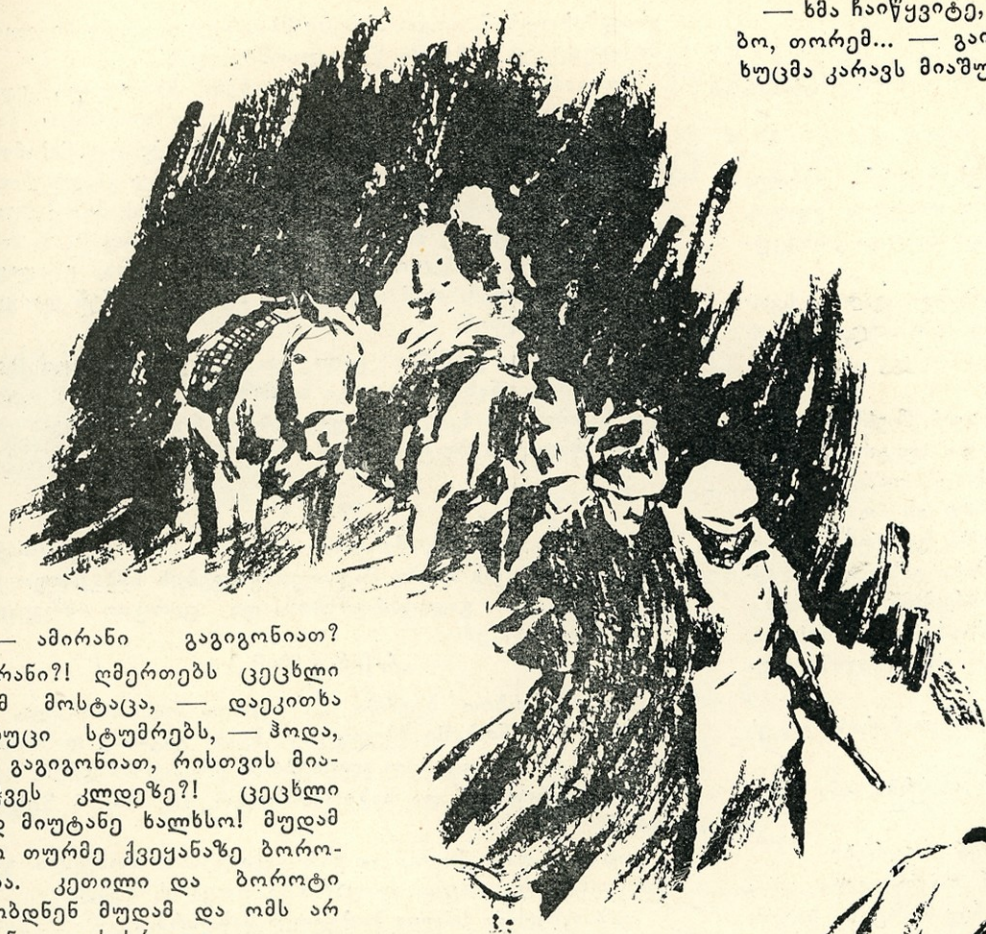 — ხმა ჩაიწყვიტე,
ბო, თორემ... —
ხუცმა კარავს
— ამირანი გაგიგონიათ?
ღმერთებს ცეცხლი
მოსტაცა, — დაეკითხა
სტუმრებს, — ჰოდა,
გაგიგონიათ, რისთვის მია-
კლდეზე?! ცეცხლი
მიუტანე ხალხსო! მუდამ
თურმე ქვეყანაზე ბორო-
კეთილი და ბოროტი
მუდამ და ომს არ